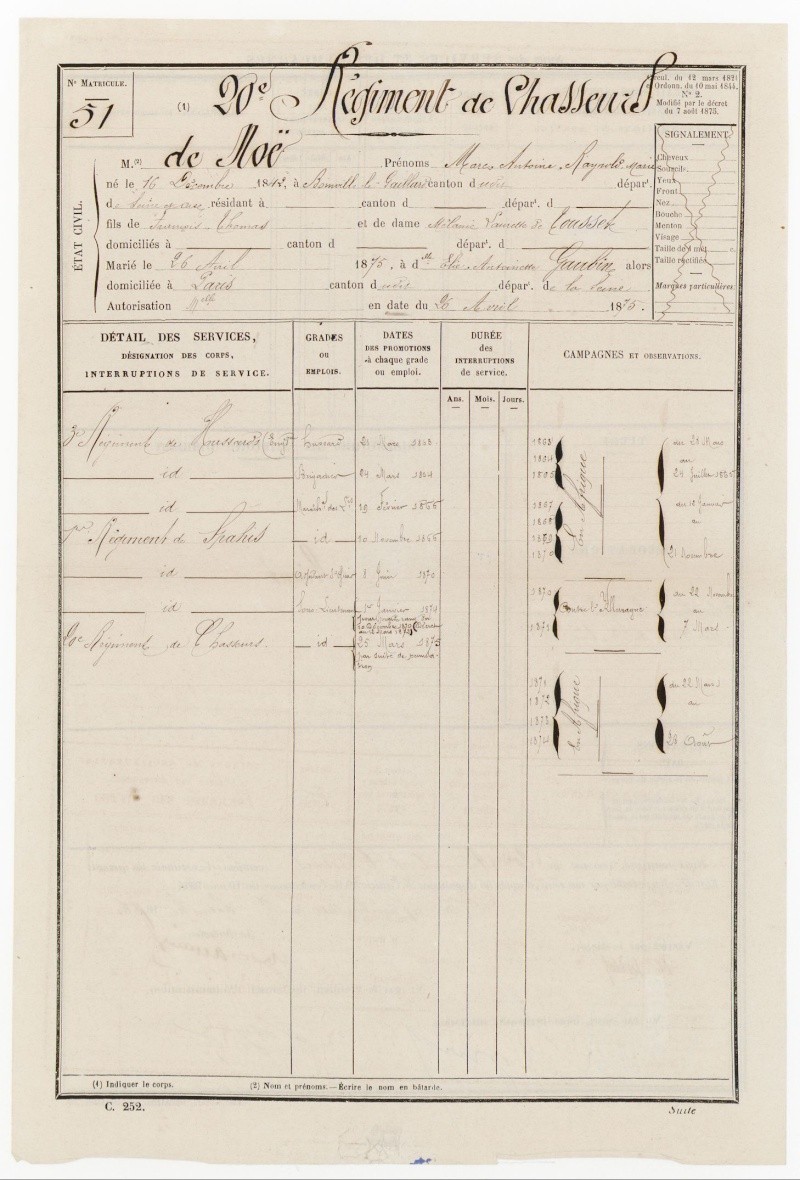 Nº MATRICULE.
51
(1) 20e Régiment de Chasseurs
Circul. du 12 mars 1821
et Ordonn. du 10 mai 1844.
Nº 2.
Modifié par le décret
du 7 août 1875.
ÉTAT CIVIL.
M.(2) de Noë Prénoms Marc Antoine Marie
né le 16 Décembre 1842, à Gaillard canton d udit départ.
de Seine et Oise résidant à canton d départ. d
fils de François Thomas et de dame Mélanie Laurette de Cousser
domiciliés à canton d départ. d
Marié le 26 Avril 1875, à dlle Antoinette Gaudin alors
domiciliée à Paris canton d udit départ. de la Seine
Autorisation Mlle en date du 20 Avril 1875.
SIGNALEMENT
Cheveux
Sourcils
Yeux
Front
Nez
Bouche
Menton
Visage
Taille de 1 mèt. c.
Taille rectifiée
Marques particulières
DÉTAIL DES SERVICES,
DÉSIGNATION DES CORPS,
INTERRUPTIONS DE SERVICE.
GRADES
ou
EMPLOIS.
DATES
DES PROMOTIONS
à chaque grade
ou emploi.
DURÉE
des
INTERRUPTIONS
de service.
CAMPAGNES ET OBSERVATIONS.
Ans. Mois. Jours.
3e Régiment de Hussards (Engé Hussard 21 Mars 1863
id Brigadier 24 Mars 1864
id Maréchal des Lis 19 Février 1866
1er Régiment de Spahis id 10 Novembre 1866
id Adjudant s/officier 8 Juin 1870
id Sous-Lieutenant 1er Janvier 1871
20e Régiment de Chasseurs. id 25 Mars 1875
par suite de permutation
1863
1864
1865
En Afrique
du 21 Mars
au
24 Juillet 1865
1867
1868
1869
1870
du 10 Janvier
au
21 Novembre
1870
1871
Contre l'Allemagne
du 22 Novembre
au
7 Mars
1871
1872
1873
1874
En Afrique
du 22 Mars
au
28 Août
(1) Indiquer le corps. (2) Nom et prénoms.—Écrire le nom en bâtarde.
C. 252.
Suite